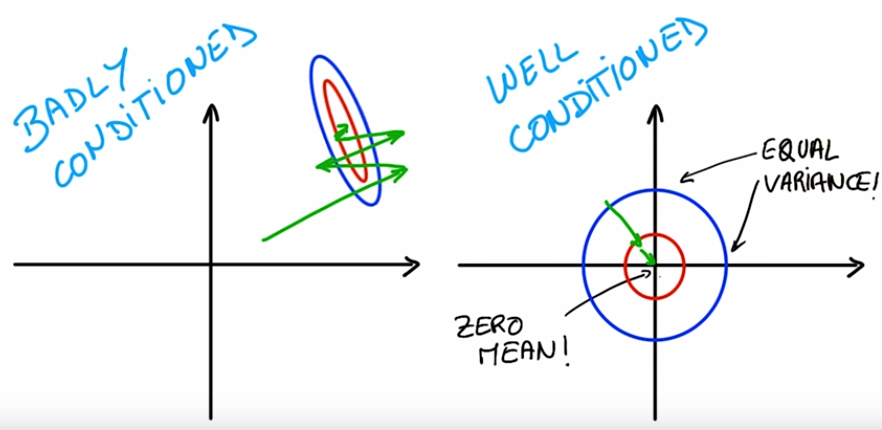 BADLY
CONDITIONED
WELL
CONDITIONED
EQUAL
VARIANCE!
ZERO
MEAN!